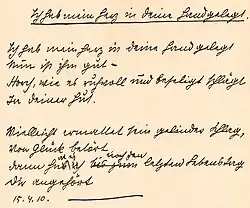 Ich hab mein Herz in deine Hand gelegt.
Ich hab mein Herz in deine Hand gelegt
Nun ist ihm gut –
Horch, wie es ruhvoll und beseligt schlägt
In deiner Hut.
Vielleicht ermattet sein gelinder Schlag,
Von Glück betört
dann hat es bis zum letzten Lebenstag
Dir angehört
15.4.10.